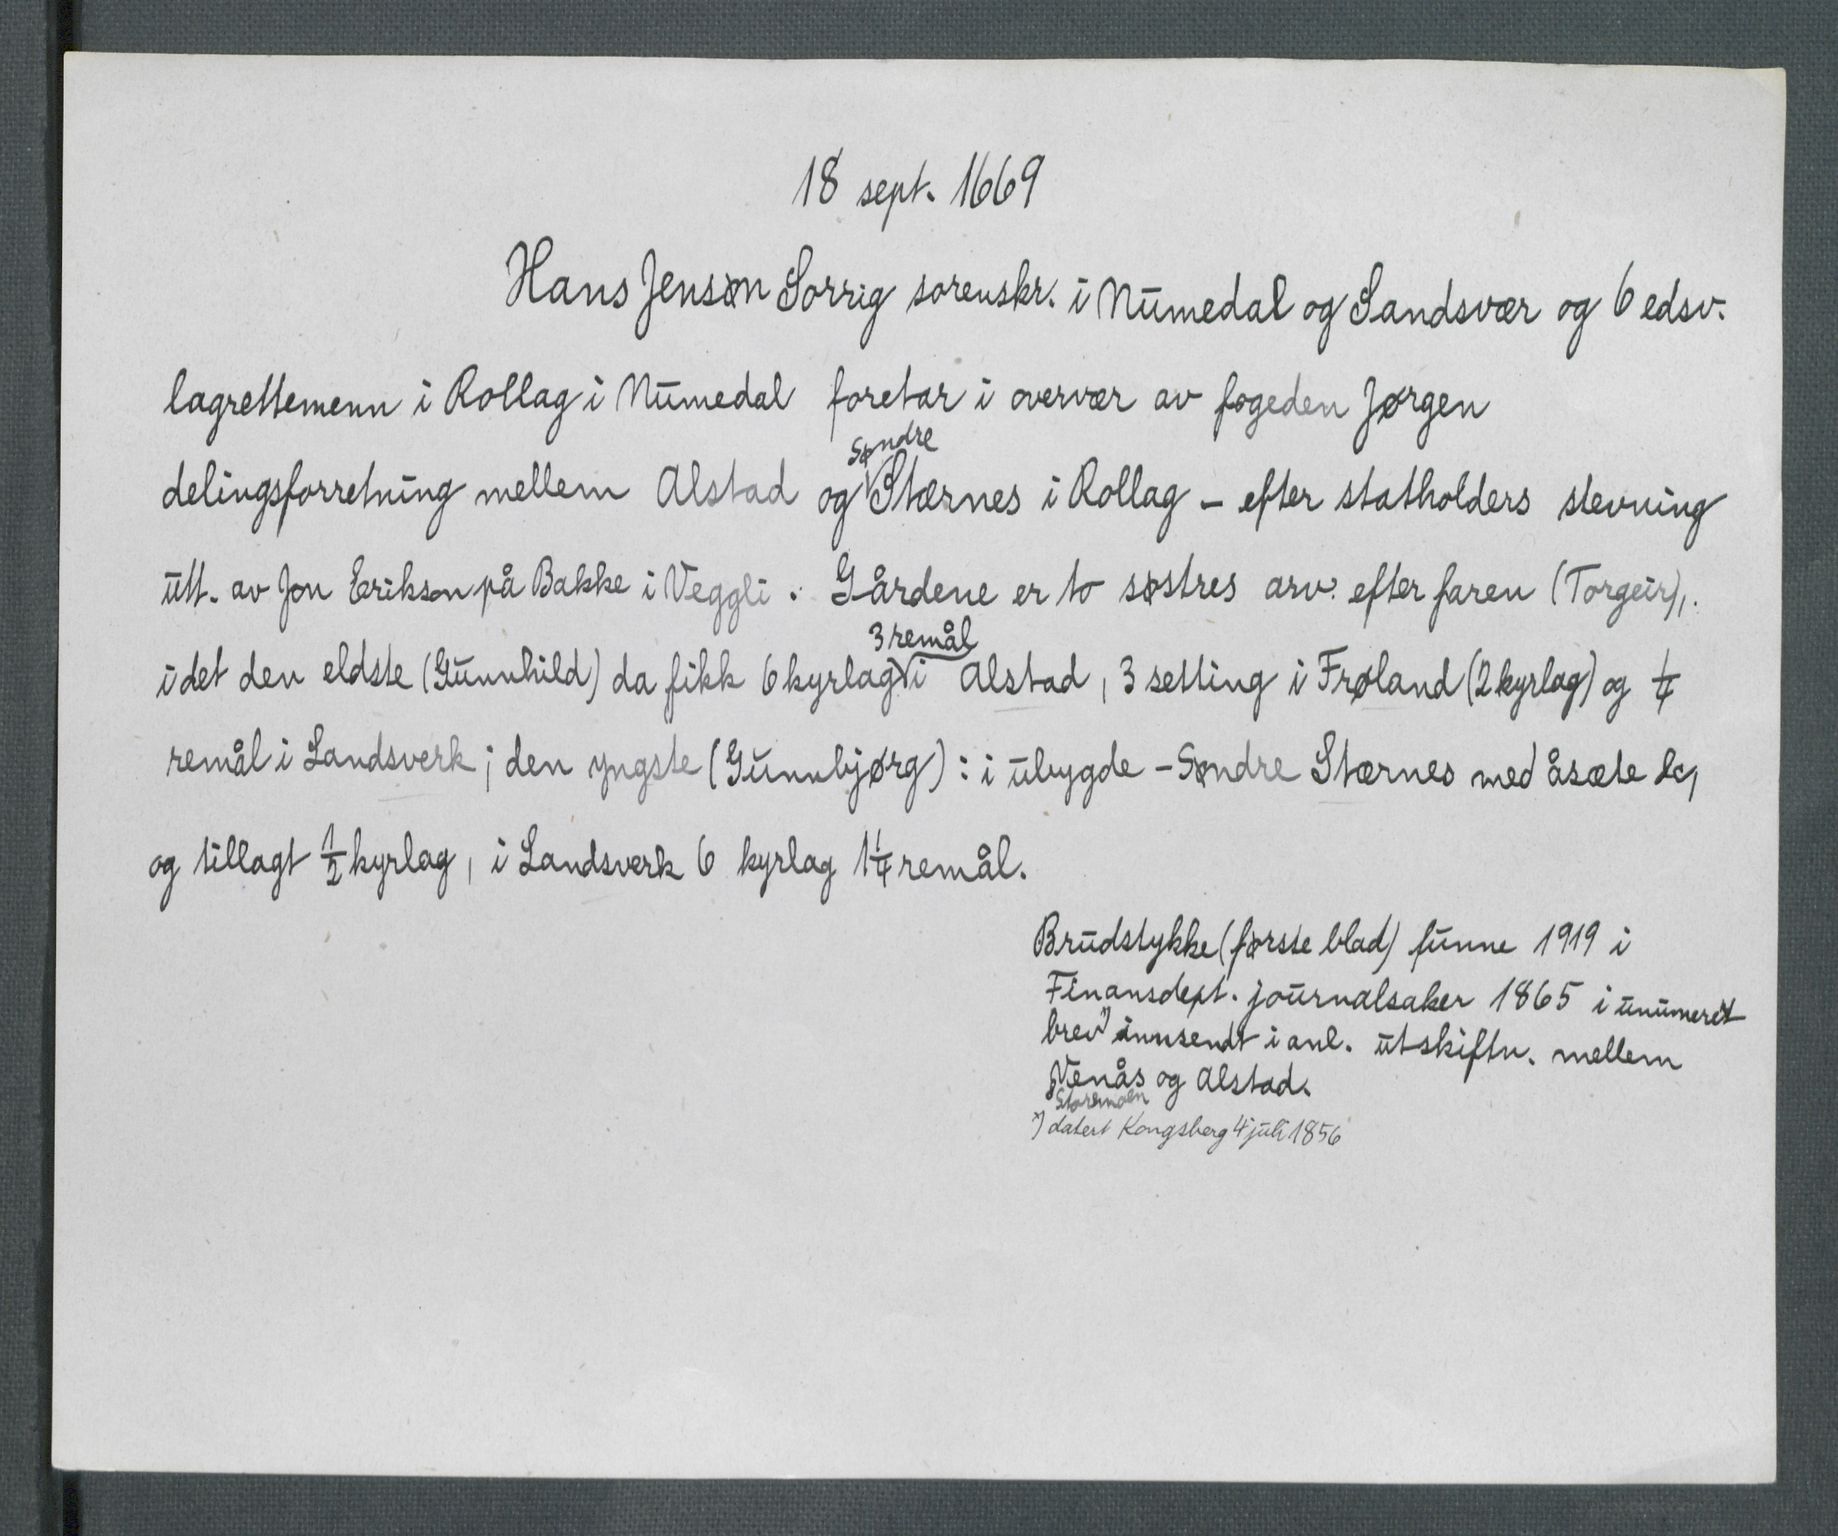 18 sept. 1669
Hans Jensøn Sorrig sorenskr. i Numedal og Sandsvær og 6 edsv.
lagrettemenn i Rollag i Numedal foretar i overvær av fogeden Jørgen
delingsforretning mellem Alstad og Søndre Stærnes i Rollag - efter statholders stevning
utt. av Jon Erikson på Bakke i Veggli. Gårdene er to søstres arv. efter faren (Torgeir),.
idet den eldste (Gunnhild) da fikk 6 kyrlag 3 remål i Alstad, 3 setting i Frøland (2 kyrlag) og 1/4
remål i Landsverk; den yngste (Gunnbjørg): i ubygde - Søndre Stærnes med åsæte &c,
og tillagt 1/2 kyrlag, i Landsverk 6 kyrlag 1 1/4 remål.
Brudstykke (første blad) funne 1919 i
Finansdept. journalsaker 1865 i unumeret
brev*) innsendt i anl. utskiftn. mellem
Venås og Alstad.
Storemoen
*) datert Kongsberg 4 juli 1856